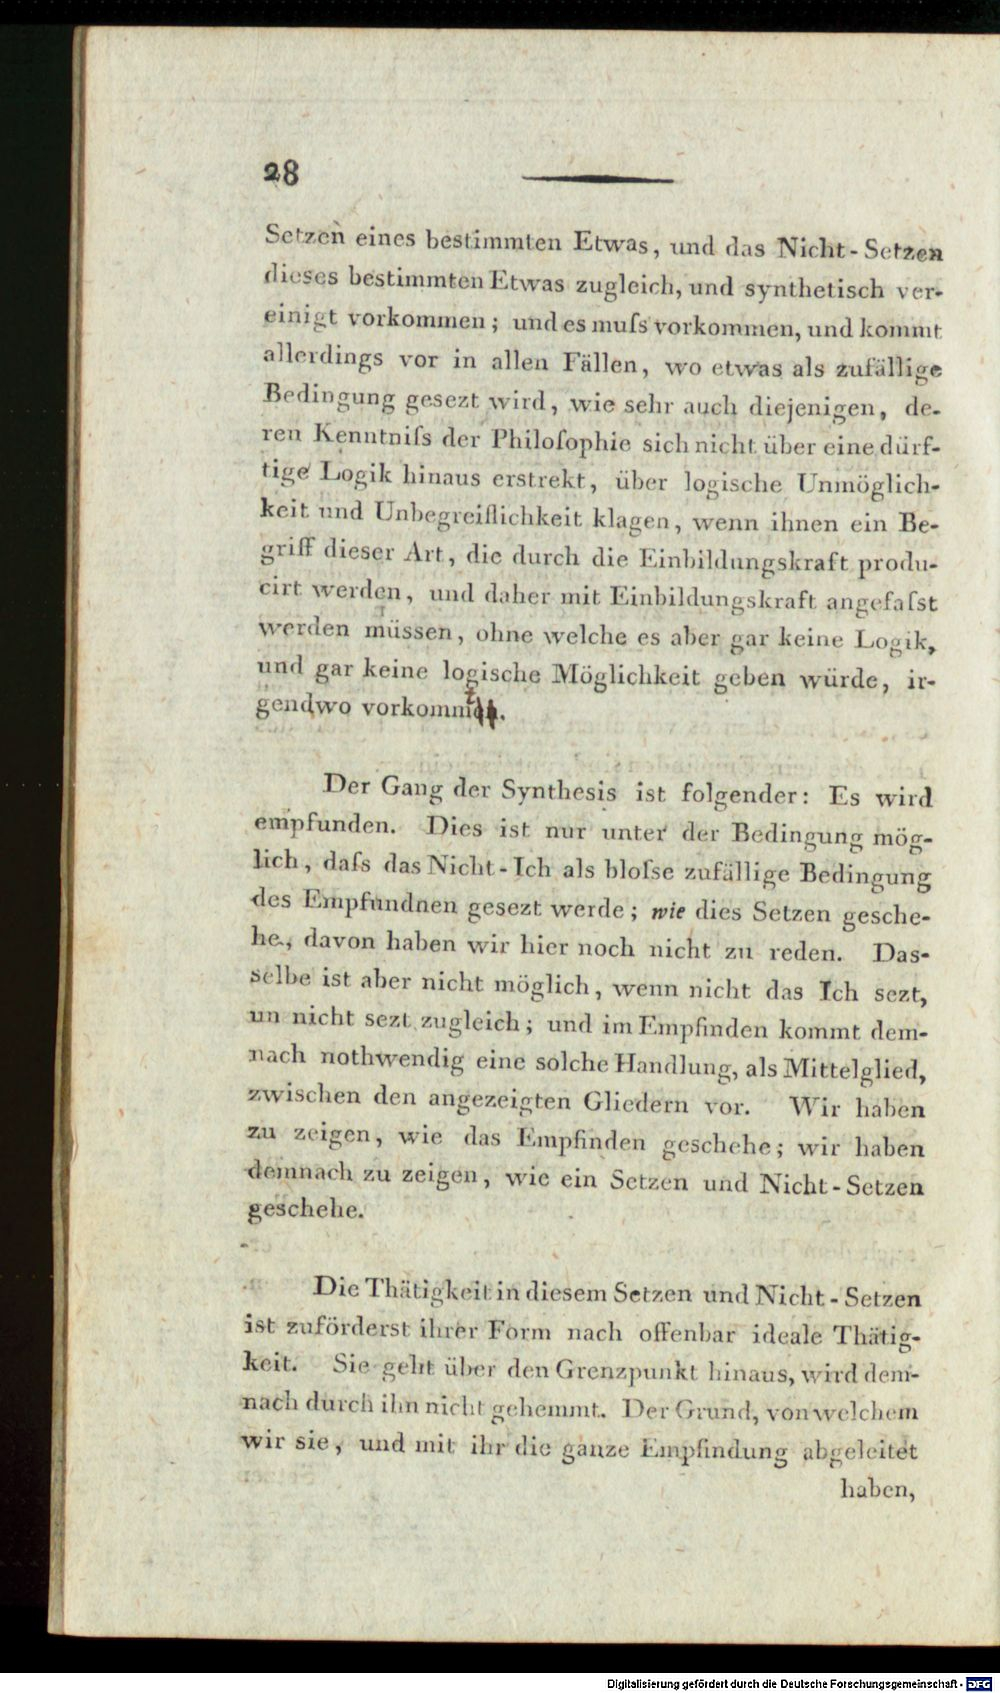 28
Setzen eines bestimmten Etwas, und das Nicht-Setzen
dieses bestimmten Etwas zugleich, und synthetisch ver-
einigt vorkommen; und es muſs vorkommen, und kommt
allerdings vor in allen Fällen, wo etwas als zufällige
Bedingung gesezt wird, wie sehr auch diejenigen, de-
ren Kenntniſs der Philoſophie sich nicht über eine dürf-
tige Logik hinaus erstrekt, über logische Unmöglich-
keit und Unbegreiflichkeit klagen, wenn ihnen ein Be-
griff dieser Art, die durch die Einbildungskraft produ-
cirt werden, und daher mit Einbildungskraft angefaſst
werden müssen, ohne welche es aber gar keine Logik,
und gar keine logische Möglichkeit geben würde, ir-
gendwo vorkommt.
Der Gang der Synthesis ist folgender: Es wird
empfunden. Dies ist nur unter der Bedingung mög-
lich, daſs das Nicht-Ich als bloſse zufällige Bedingung
des Empfundnen gesezt werde; wie dies Setzen gesche-
he, davon haben wir hier noch nicht zu reden. Das-
selbe ist aber nicht möglich, wenn nicht das Ich sezt,
un nicht sezt zugleich; und im Empfinden kommt dem-
nach nothwendig eine solche Handlung, als Mittelglied,
zwischen den angezeigten Gliedern vor. Wir haben
zu zeigen, wie das Empfinden geschehe; wir haben
demnach zu zeigen, wie ein Setzen und Nicht-Setzen
geschehe.
Die Thätigkeit in diesem Setzen und Nicht-Setzen
ist zuförderst ihrer Form nach offenbar ideale Thätig-
keit. Sie geht über den Grenzpunkt hinaus, wird dem-
nach durch ihn nicht gehemmt. Der Grund, von welchem
wir sie, und mit ihr die ganze Empfindung abgeleitet
haben,
Digitalisierung gefördert durch die Deutsche Forschungsgemeinschaft - DFG